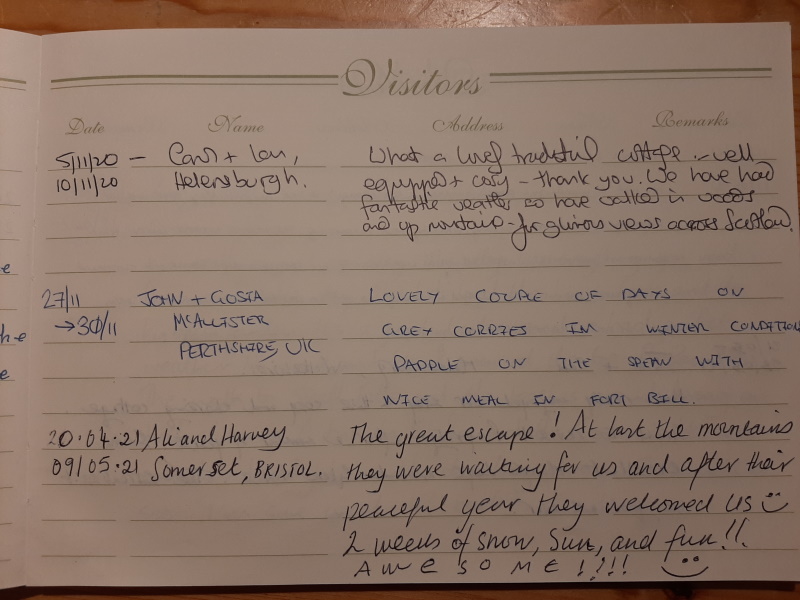 Visitors
Date Name Address Remarks
5/11/20 - + Ian, What a lovely traditional cottage - well
10/11/20 Helensburgh. equipped + cosy - thank you. We have had
fantastic weather so have walked in woods
and up mountains - for glorious views across Scotland.
27/11 JOHN + GOSIA LOVELY COUPLE OF DAYS ON
→30/11 MCALISTER GREY CORRIES IM WINTER CONDITION
PERTHSHIRE, UK PADDLE ON THE SPEAN WITH
NICE MEAL IN FORT BILL.
20.04.21 Ali and Harvey The great escape! At last the mountains
09/05.21 Somerset, BRISTOL. they were waiting for us and after their
peaceful year they welcomed us
2 weeks of snow, sun, and fun!!
AWESOME!?!!
he
e